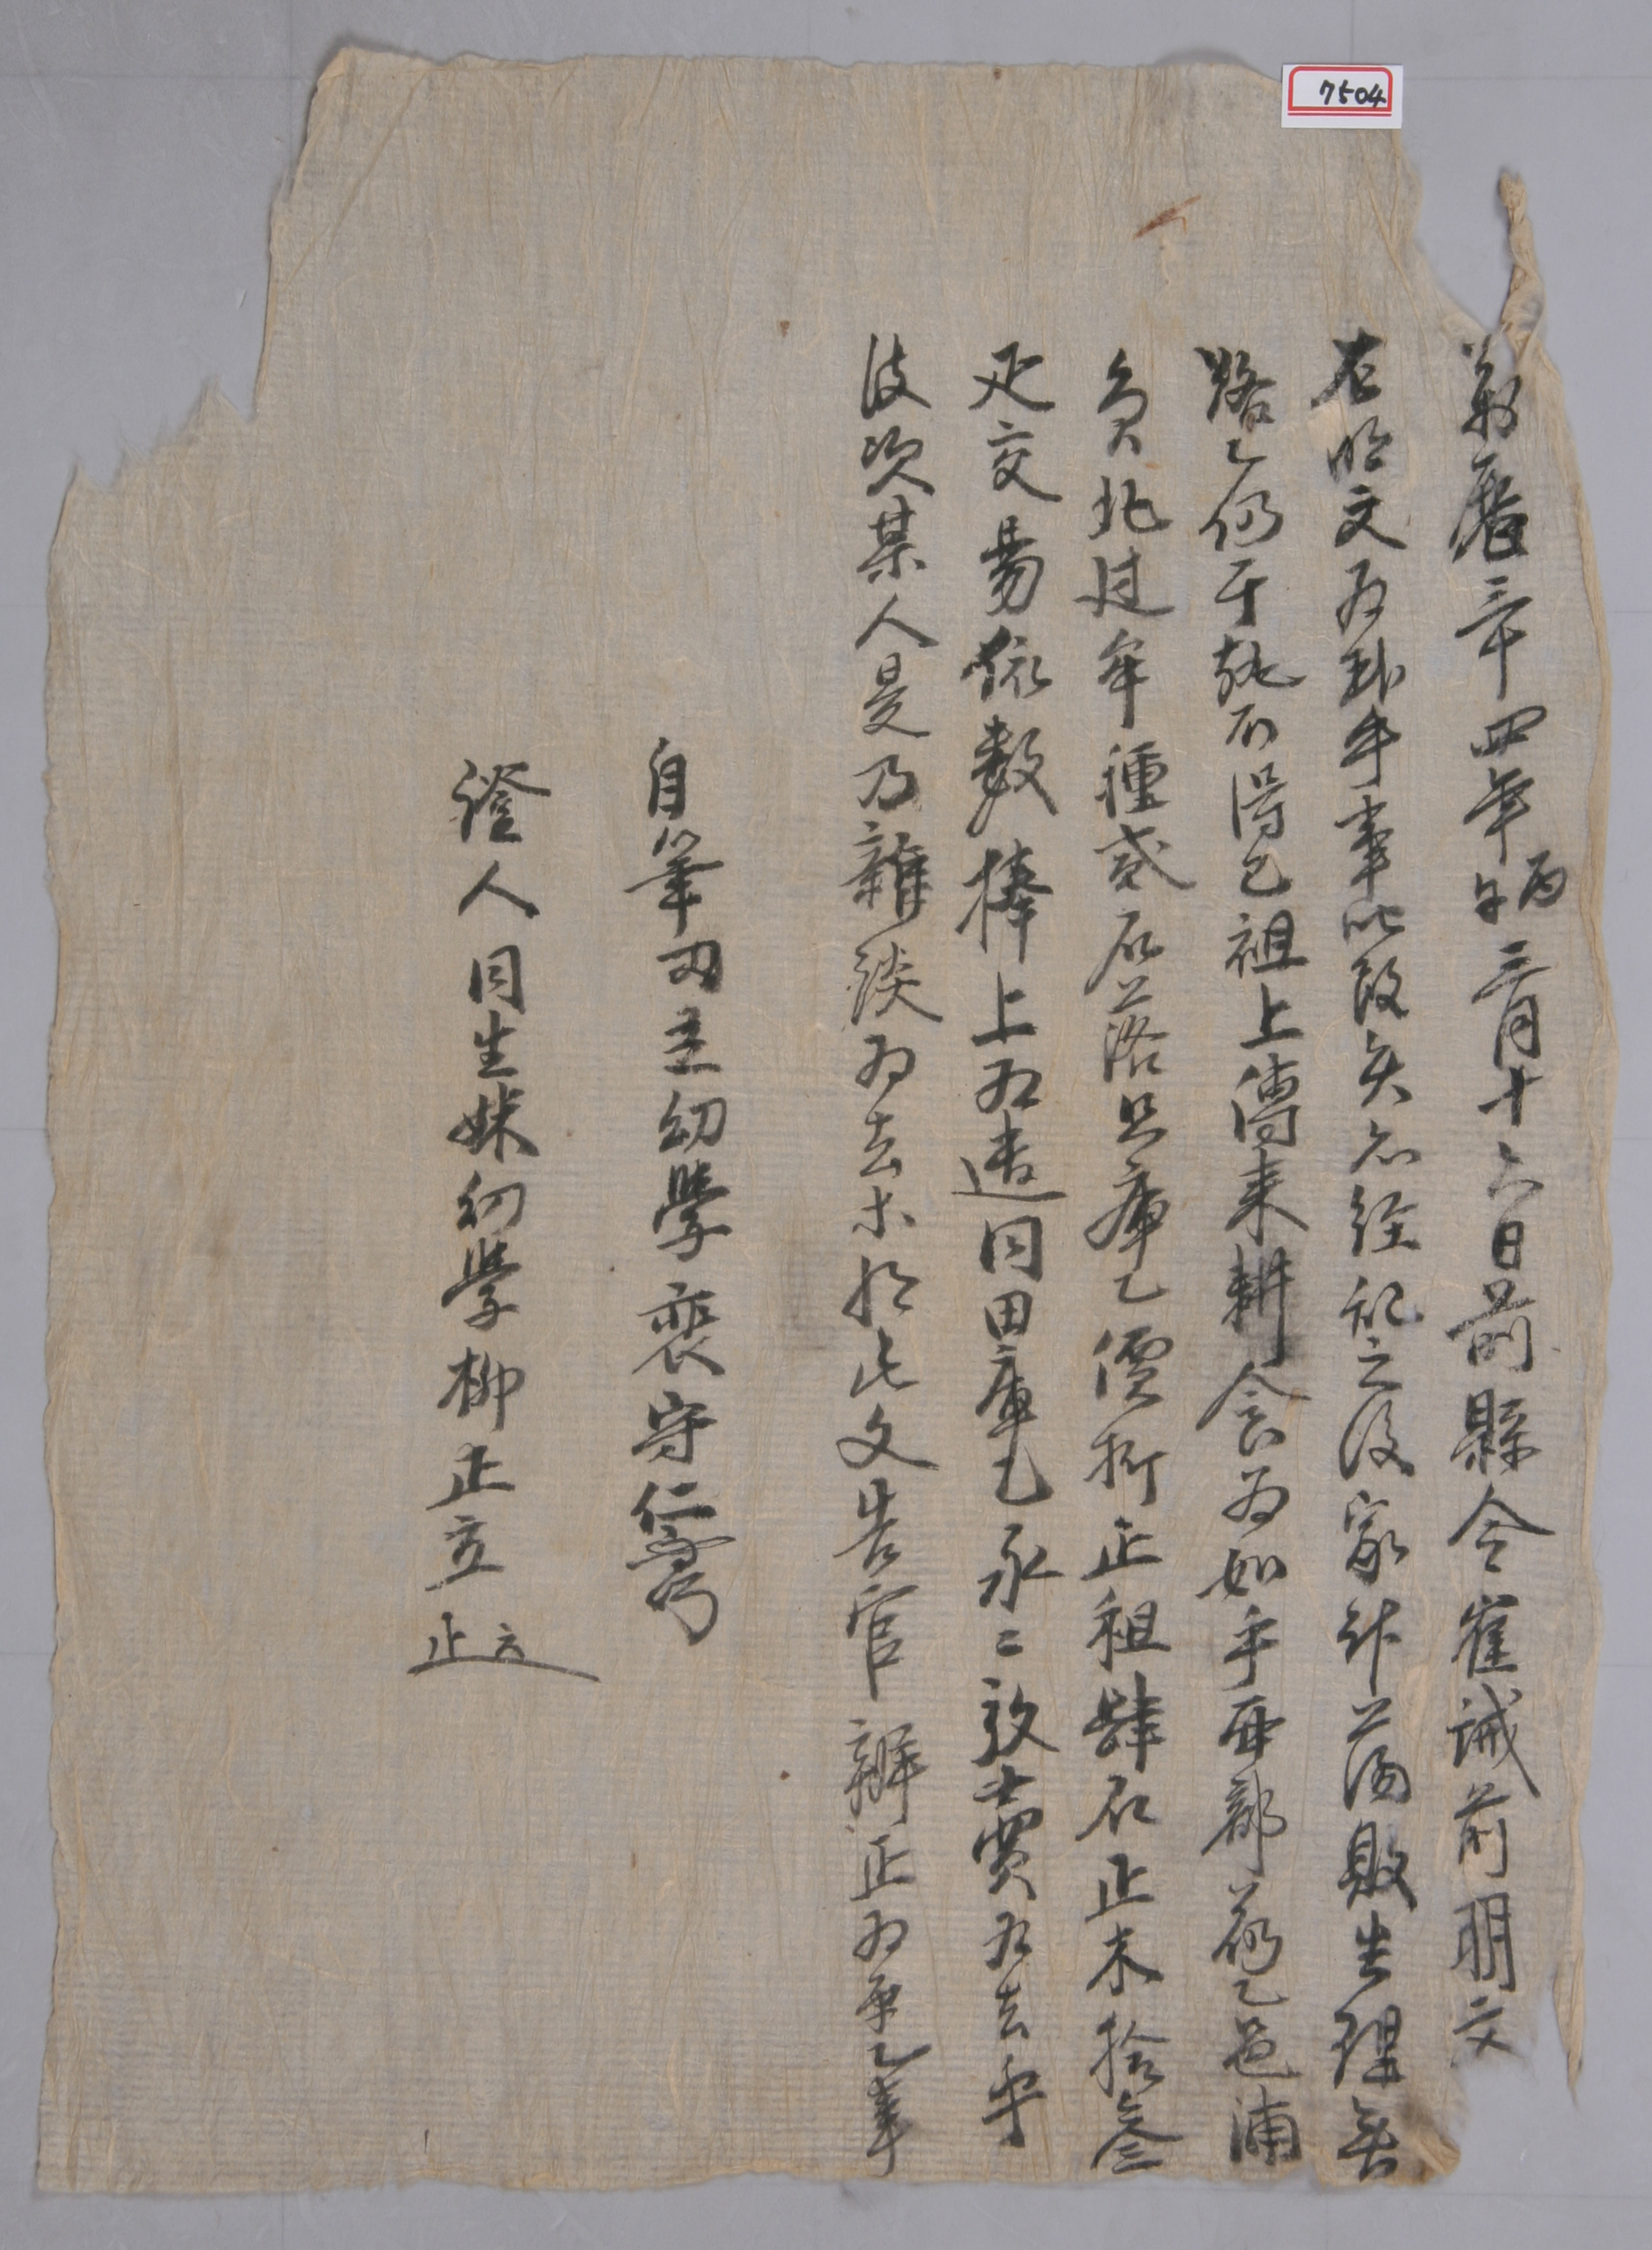 7504
萬曆三十四年丙午三月十六日前縣令崔誠前明文
右明文爲臥乎事段矣亦經亂之後家計蕩敗生理無
路乙仍于不得已祖上傳來耕食爲如乎
員北過牟種貳石落只庫乙價折正租肆石正木拾叁
疋交易依數捧上爲遣同田庫乙永永放賣爲去乎
後次某人是乃雜談爲去等將此文告官辨正爲乎乙事
自筆田主幼學裵守仁
證人同生妹幼學柳正立